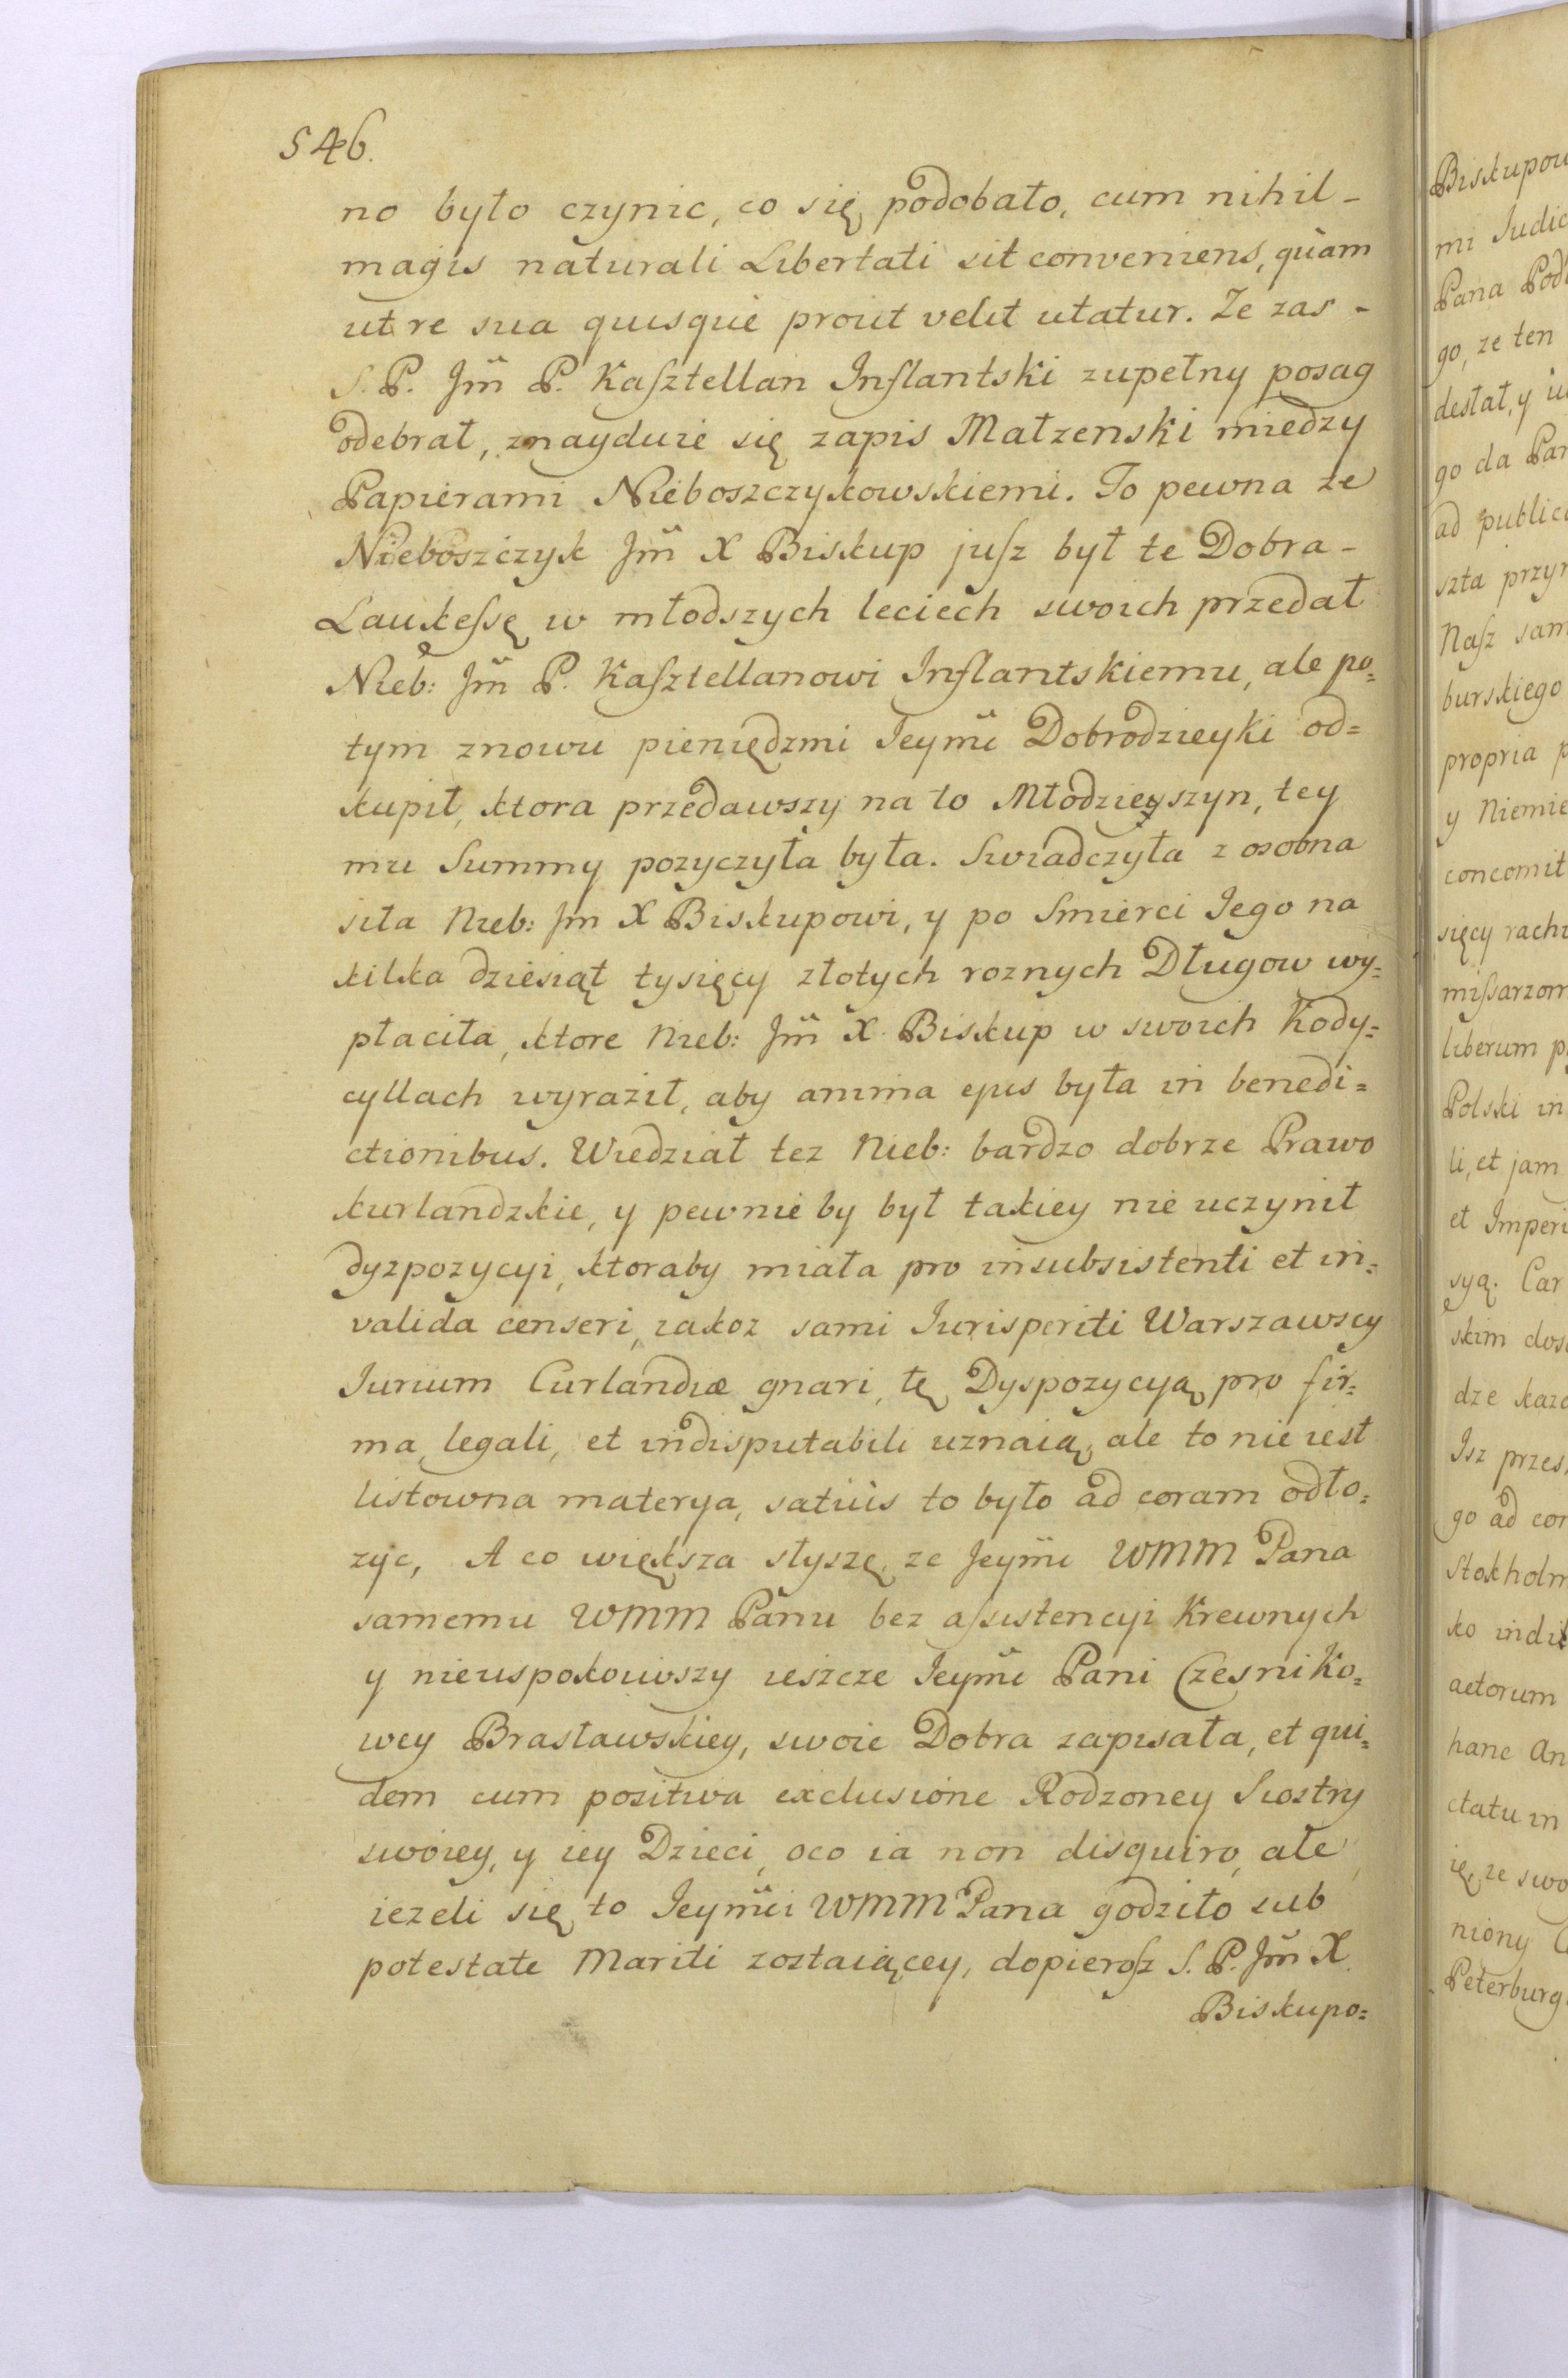 546.
no było czynic, co się podobało, cum nihil -
magis naturali Libertati sit conveniens, quam
ut re sua quisque prout velit utatur. Ze zas -
S. P. Jm̃ P. Kasztellan Inflantski zupełny posag
odebrał, znayduie się zapis Małzenski miedzy
Papierami Nieboszczykowskiemi. To pewna ze
Nieboszczyk Jm̃ X Biskup jusz był te Dobra -
Laukessę w młodszych leciech swoich przedał
Nieb: Jm̃ P. Kasztellanowi Inflantskiemu, ale po=
tym znowu pieniędzmi Ieym̃ci Dobrodzieyki od=
kupił, ktora przedawszy na to Młodzieyszyn, tey
mu Summy pozyczyła była. Swiadczyła z osobna
siła Nieb: Jm X Biskupowi, y po Smierci Iego na
kilka dziesiąt tysięcy złotych roznych Długow wy=
płaciła, ktore Nieb: Jm̃ X Biskup w swoich Kody=
cyllach wyraził, aby anima ejus była in benedi=
ctionibus. Wiedział tez Nieb: bardzo dobrze Prawo
kurlandzkie, y pewnie by był takiey nie uczynił
dyzpozycyi, ktoraby miała pro insubsistenti et in=
valida censeri, iakoz sami Iurisperiti Warszawscy
Iurium Curlandiæ gnari, tę Dyspozycyą pro fir=
ma, legali, et indisputabili uznaią, ale to nie iest
listowna materya, satius to było ad coram odło=
zyc, A co większa słyszę ze Jeym̃ci WMM Pana
samemu WMM Panu bez assistencyi Krewnych
y nieuspokoiwszy ieszcze Ieym̃ci Pani Czesniko=
wey Brasławskiey, swoie Dobra zapisała, et qui=
dem cum positiva exclusione Rodzoney Siostry
swoiey, y iey Dzieci, oco ia non disquiro, ale
iezeli się to Ieym̃ci WMM Pana godziło sub
potestate Mariti zostaiącey, dopierosz S. P. Jm̃ X.
Biskupo=
Biskupow
mi Iudic
Pana Pod
go, ze ten
destał, y iu
go da Pan
ad public
szta przyn
Nasz sam
burskiego
propria p
y Niemie
concomit
sięcy rachu
missarzom
liberum p
Polski in
li, et jam
et Imperi
syą. Car
skim dos
dze kazd
Isz przes
go ad cor
Stokholm
ko indi
actorum
hanc An
ctatu in
ię, ze swo
niony
Peterburg